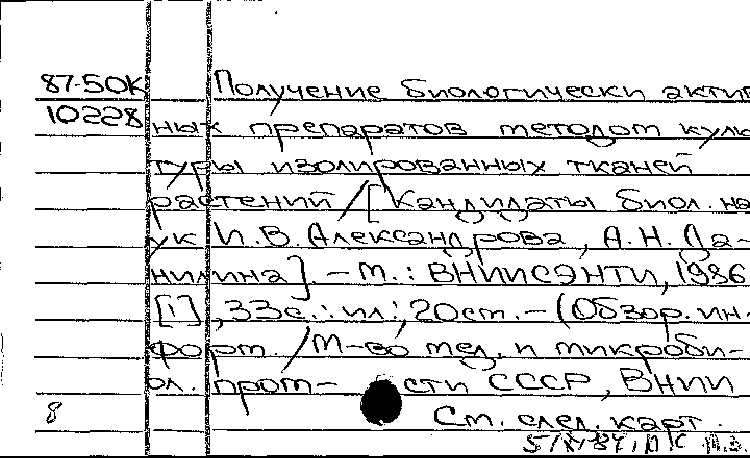 87-50К Получение биологически актив
10228 ных препаратов методом куль
туры изолированных тканей
растений / [Кандидаты биол. на
ук И.В. Александрова, А.Н. Да-
нилина]. – М.: ВНИИСЭНТИ, 1986
[1], 33с.: ил.; 20см. – (Обзор. ин-
форм. / М-во мед. и микроби-
ол. пром- сти СССР, ВНИИ
8 См. след. карт.